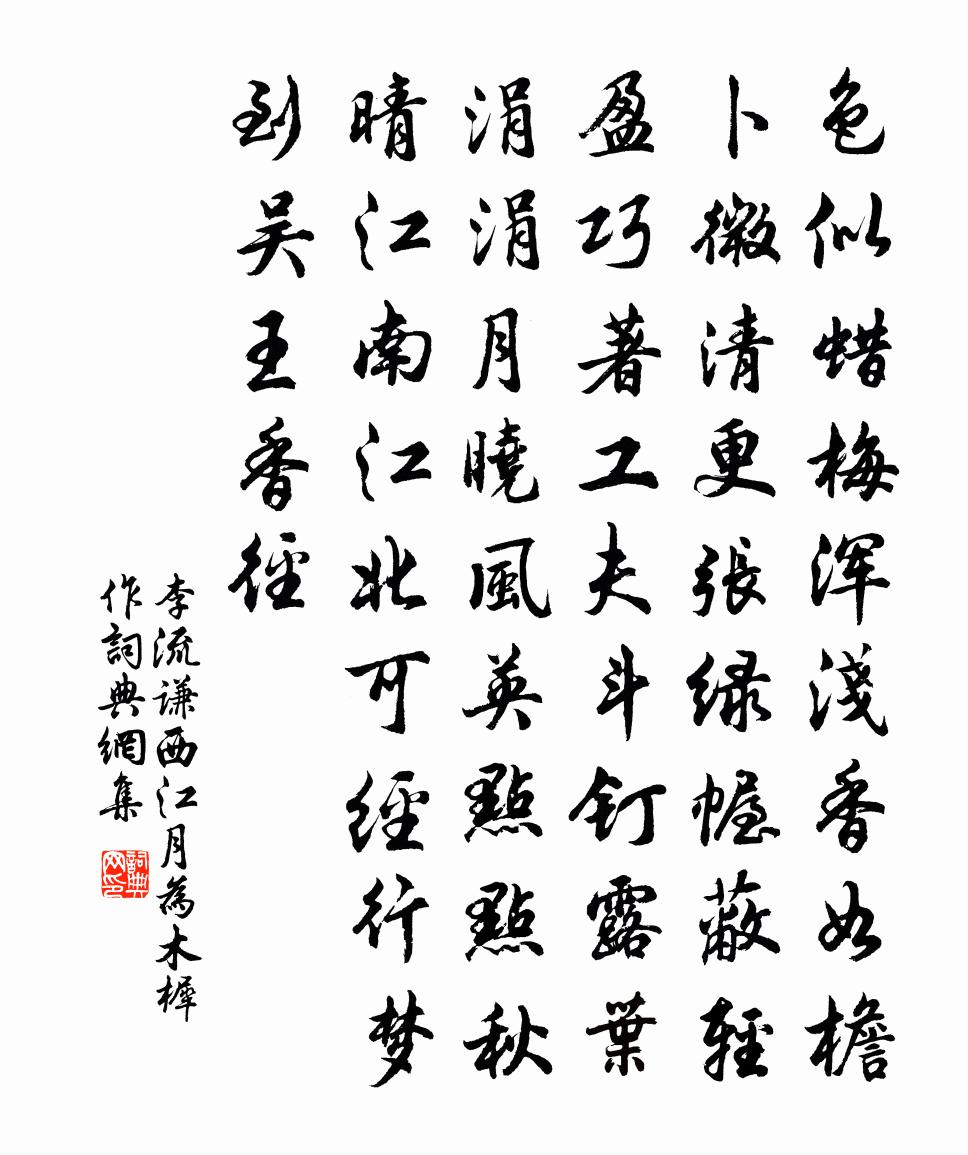 色似蜡梅浑淺香如檐
卜微清更張绿幄蔽輕
盈巧著工夫斗釘露葉
涓涓月曉風英點點秋
晴江南江北可經行梦
到吴王香徑
李流谦西江月為木樨
作詞典網集
詞典
网印